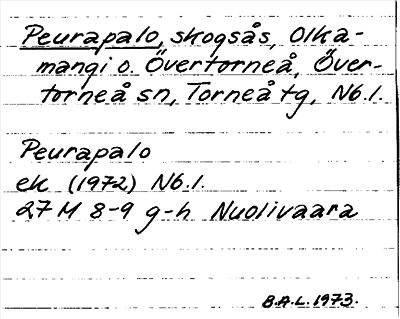 Peurapalo, skogsås, Olka-
mangi o. Övertorneå, Över-
torneå sn, Torneå tg, Nb.l.
Peurapalo
ek (1972) Nb.l.
27 M 8-9 g-h Nuolivaara
B.A.L. 1973.